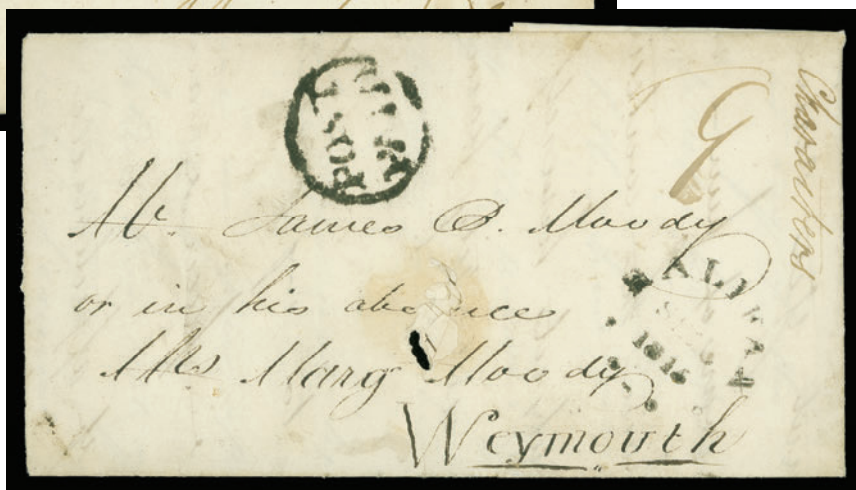 POST
9
Mr. James B. Moody
or in his absence
Mrs Marg Moody
Weymouth
HALIFAX
1815
N.S.